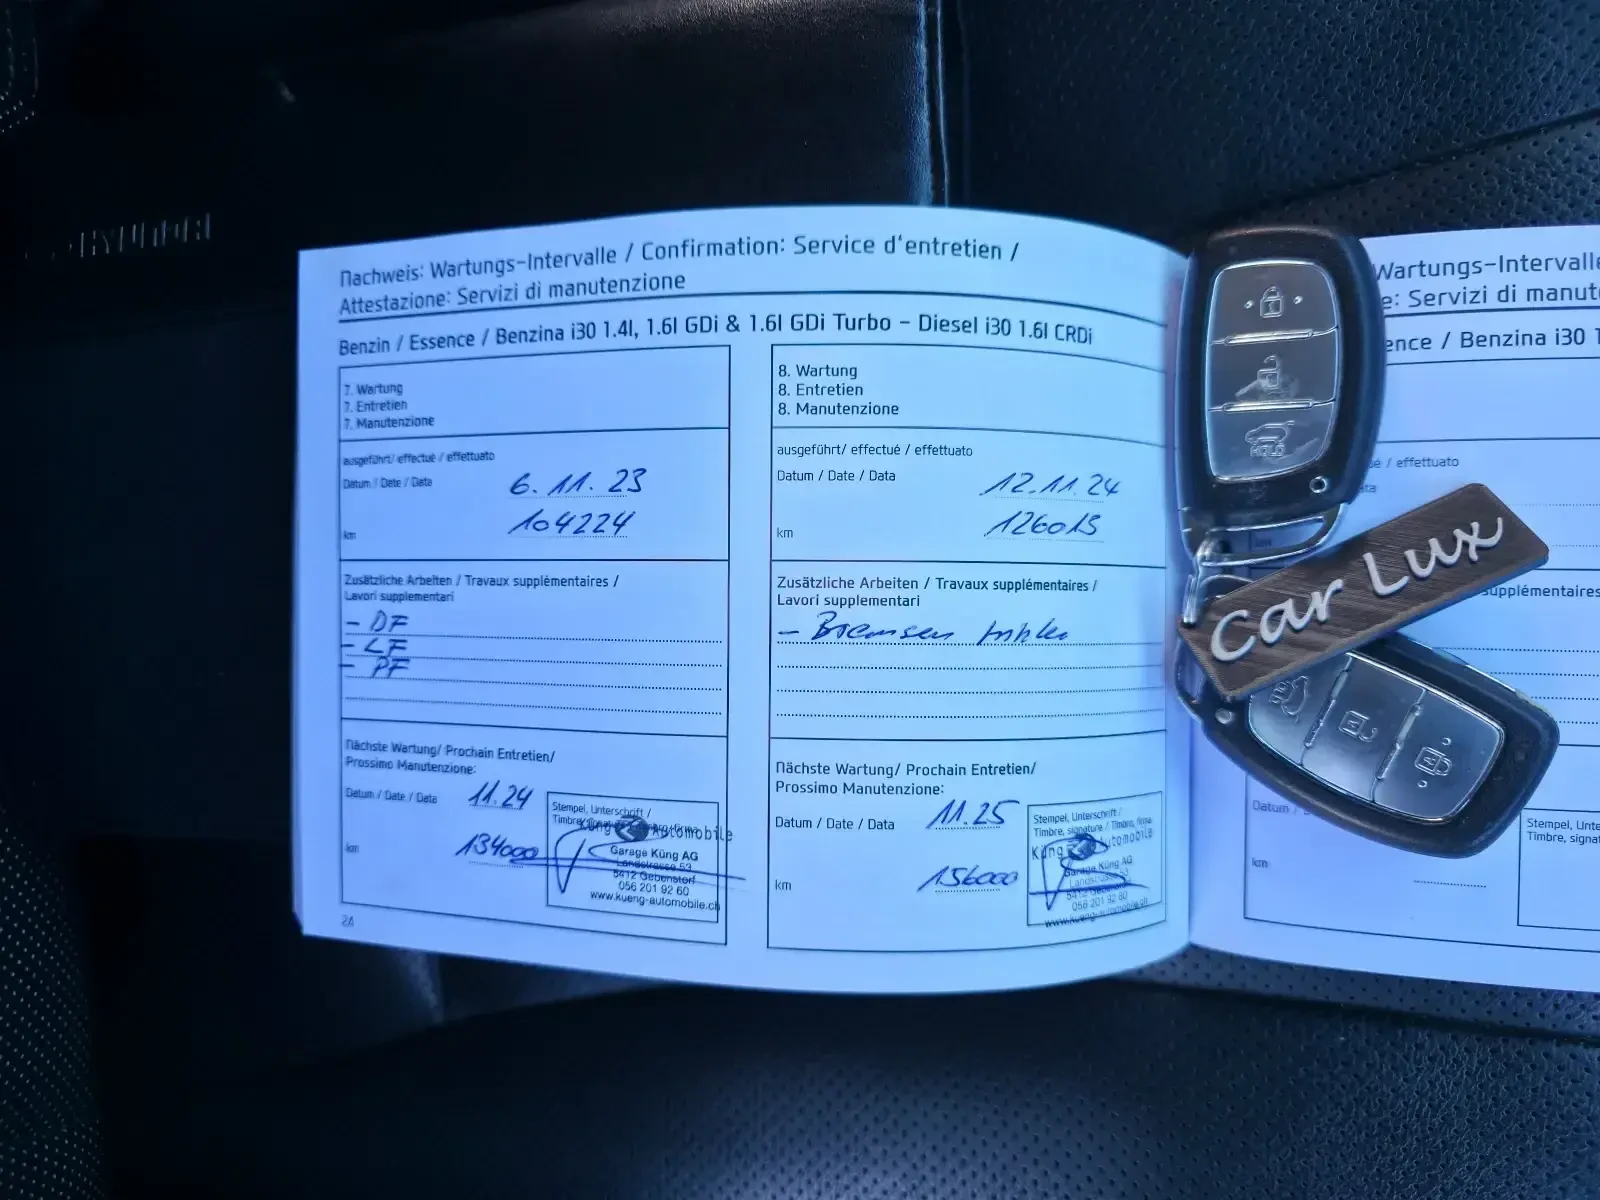 HYUNDAI
Nachweis: Wartungs-Intervalle / Confirmation: Service d'entretien /
Attestazione: Servizi di manutenzione
Benzin / Essence / Benzina i30 1.4l, 1.6l GDi & 1.6l GDi Turbo – Diesel i30 1.6l CRDi
7. Wartung
7. Entretien
7. Manutenzione
ausgeführt/ effectué / effettuato
Datum / Date / Data 6.11.23
km 104224
Zusätzliche Arbeiten / Travaux supplémentaires /
Lavori supplementari
- DF
- LF
- PF
Nächste Wartung/ Prochain Entretien/
Prossimo Manutenzione:
Datum / Date / Data 11.24
km 134000
Stempel, Unterschrift /
Küng Automobile
Garage Küng AG
Landstrasse 53
5412 Gebenstorf
056 201 92 60
www.kueng-automobile.ch
24
8. Wartung
8. Entretien
8. Manutenzione
ausgeführt/ effectué / effettuato
Datum / Date / Data 12.11.24
km 126013
Zusätzliche Arbeiten / Travaux supplémentaires /
Lavori supplementari
- Bremsen
Nächste Wartung/ Prochain Entretien/
Prossimo Manutenzione:
Datum / Date / Data 11.25
km 156000
Stempel, Unterschrift /
Timbre, signature / Timbro, firma
Küng Automobile
Garage Küng AG
Landstrasse 53
5412 Gebenstorf
056 201 92 60
www.kueng-automobile.ch
HOLD
Car Lux
Wartungs-Intervalle
e: Servizi di manut
ence / Benzina i30 1
ué / effettuato
ata
supplémentaires
Datum /
km
Stempel, Unte
Timbre, signa